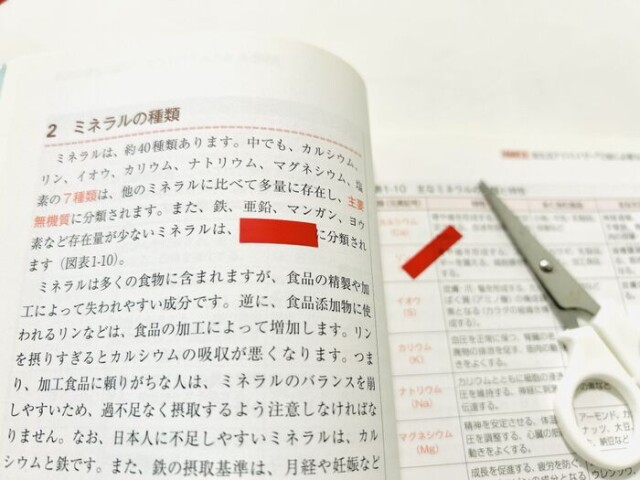 2 ミネラルの種類
ミネラルは、約40種類あります。中でも、カルシウム、
リン、イオウ、カリウム、ナトリウム、マグネシウム、塩
素の7種類は、他のミネラルに比べて多量に存在し、主要
無機質に分類されます。また、鉄、亜鉛、マンガン、ヨウ
素など存在量が少ないミネラルは、
に分類され
ます（図表1-10）。
ミネラルは多くの食物に含まれますが、食品の精製や加
工によって失われやすい成分です。逆に、食品添加物に使
われるリンなどは、食品の加工によって増加します。リン
を摂りすぎるとカルシウムの吸収が悪くなります。つま
り、加工食品に頼りがちな人は、ミネラルのバランスを崩
しやすいため、過不足なく摂取するよう注意しなければな
りません。なお、日本人に不足しやすいミネラルは、カル
シウムと鉄です。また、鉄の摂取基準は、月経や妊娠など
表1-10
カルシウム
(Ca)
イオウ
(S)
カリウム
(K)
血圧を正常に保つ。
ナトリウム
(Na)
カリウムとともに
マグネシウム
(Mg)
精神を安定させる。体温
圧を調整する。
アーモンド、カ
ナッツ、大豆
納豆など
成長を促進する。